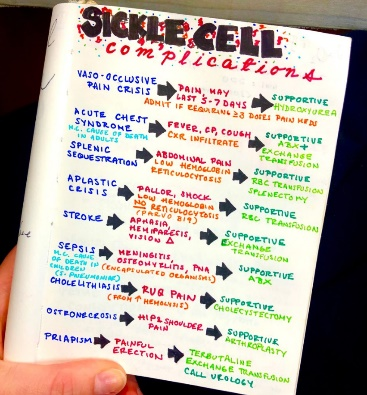 SICKLE CELL
complications
VASO-OCCLUSIVE PAIN CRISIS
PAIN, MAY LAST 5-7 DAYS
ADMIT IF REQUIRING ≥3 DOSES PAIN MEDS
SUPPORTIVE
HYDROXYUREA
ACUTE CHEST SYNDROME
M.C. CAUSE OF DEATH IN ADULTS
FEVER, CP, COUGH
CXR INFILTRATE
SUPPORTIVE
ABX +
EXCHANGE TRANSFUSION
SPLENIC SEQUESTRATION
ABDOMINAL PAIN
LOW HEMOGLOBIN
RETICULOCYTOSIS
SUPPORTIVE
RBC TRANSFUSION
SPLENECTOMY
APLASTIC CRISIS
PALLOR, SHOCK
LOW HEMOGLOBIN
NO RETICULOCYTOSIS
(PARVO B19)
SUPPORTIVE
RBC TRANSFUSION
STROKE
APHASIA, HEMIPARESIS, VISION Δ
SUPPORTIVE
EXCHANGE TRANSFUSION
SEPSIS
M.C. CAUSE OF DEATH IN CHILDREN
(S. PNEUMONIAE)
MENINGITIS, OSTEOMYELITIS, PNA
(ENCAPSULATED ORGANISMS)
SUPPORTIVE
ABX
CHOLELITHIASIS
RUQ PAIN
(FROM ↑ HEMOLYSIS)
SUPPORTIVE
CHOLECYSTECTOMY
OSTEONECROSIS
HIP & SHOULDER PAIN
SUPPORTIVE
ARTHROPLASTY
PRIAPISM
PAINFUL ERECTION
TERBUTALINE
EXCHANGE TRANSFUSION
CALL UROLOGY